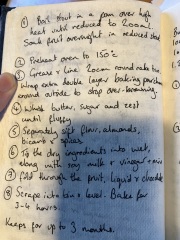 ① Boil stout in a pan over high
heat until reduced to 200ml.
Soak fruit overnight in reduced stout
② Preheat oven to 150°c
③ Grease & line 20cm round cake tin
Wrap extra double layer baking parchment
around outside to stop over-browning
④ Whisk butter, sugar and zest
until fluffy
⑤ Separately sift flour, almonds,
bicarb & spices.
⑥ Tip dry ingredients into wet,
along with soy milk & vinegar & mix
⑦ Fold through the fruit, liquid & chocolate
⑧ Scrape into tin & level. Bake for
3-4 hours.
Keeps for up to 3 months.